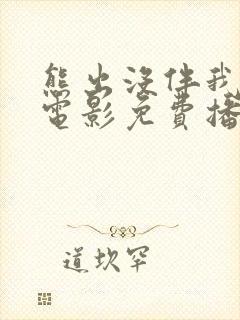 熊出没伴我
电影免費播
道坎罕